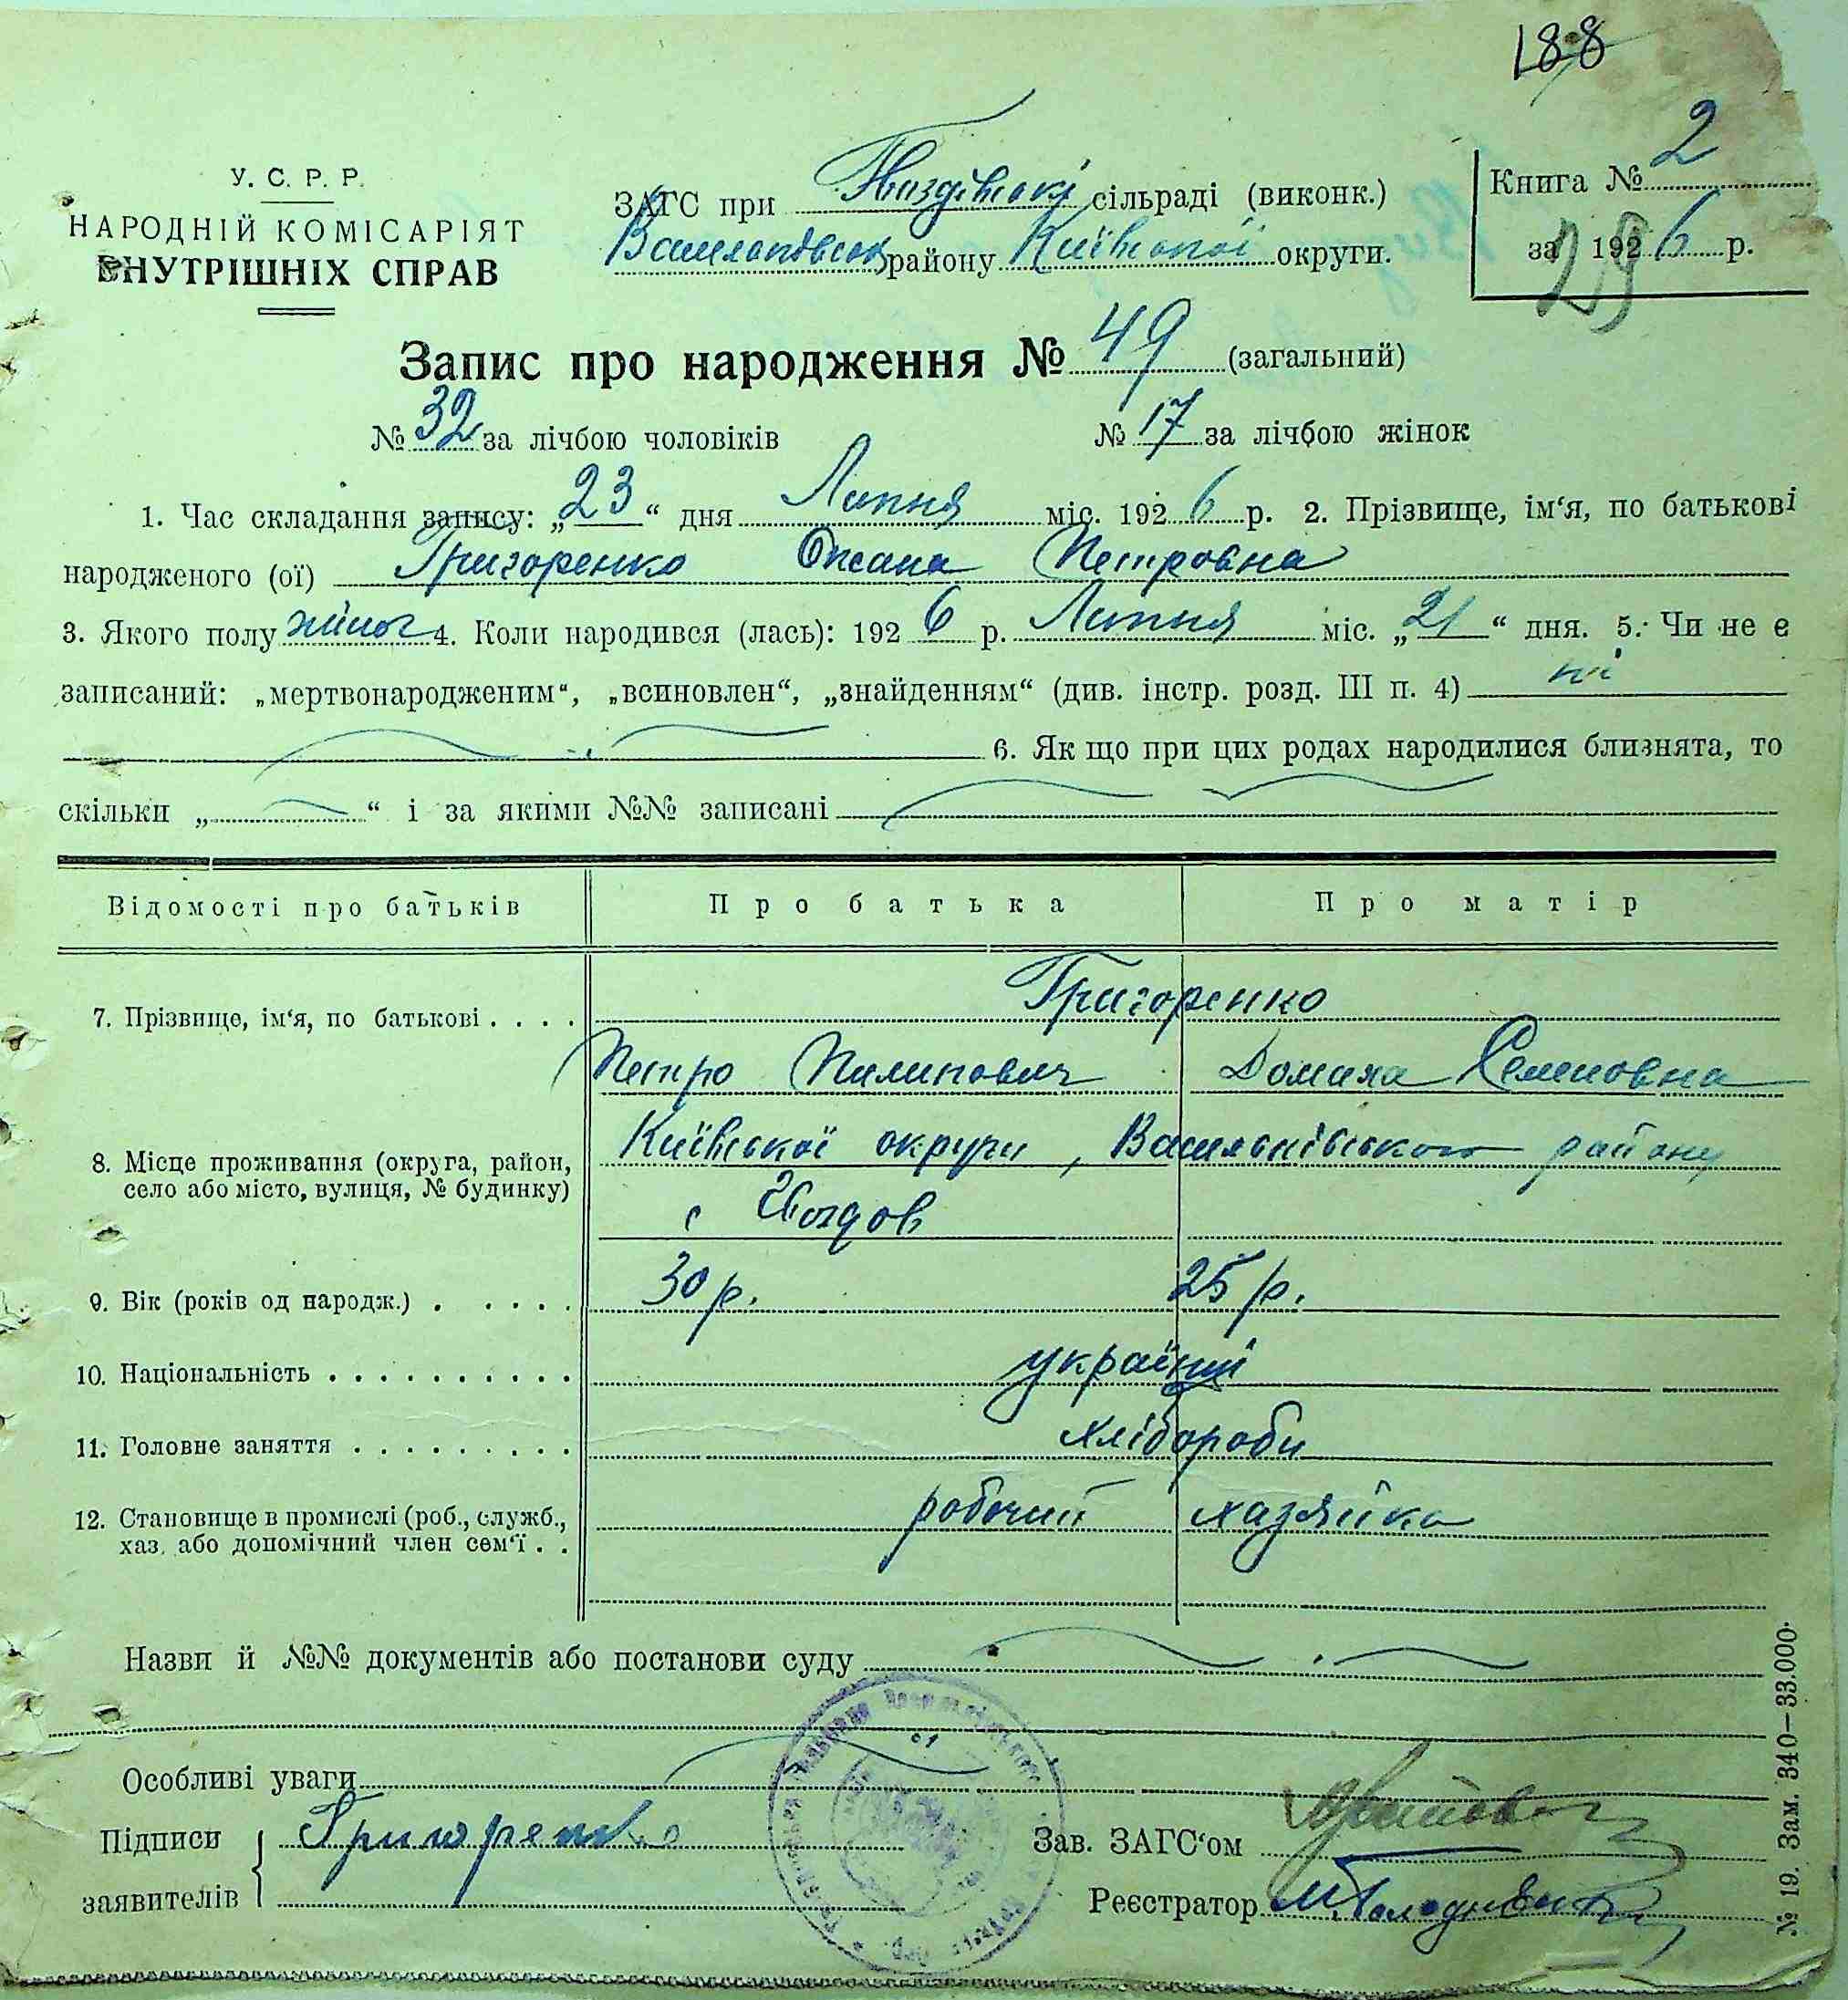 188
У. С. Р. Р.
НАРОДНІЙ КОМІСАРІЯТ
ВНУТРІШНІХ СПРАВ
ЗАГС при Гвиздівські сільраді (виконк.)
району Київської округи.
Книга № 2
за 1926 р.
Запис про народження № 49 (загальний)
№ 32 за лічбою чоловіків № 17 за лічбою жінок
1. Час складання запису: „23“ дня Липня міс. 1926 р. 2. Прізвище, ім‘я, по батькові
народженого (ої) Григоренко Оксана Петровна
3. Якого полу жіноч 4. Коли народився (лась): 1926 р. Липня міс. „21“ дня. 5. Чи не є
записаний: „мертвонародженим“, „всиновлен“, „знайденням“ (див. інстр. розд. III п. 4) ні
6. Як що при цих родах народилися близнята, то
скільки „ “ і за якими №№ записані
Відомості про батьків Про батька Про матір
7. Прізвище, ім‘я, по батькові . . . . Григоренко
Петро Пилипович Домаха Семеновна
8. Місце проживання (округа, район, село або місто, вулиця, № будинку) Київської округи, Васильківського району
с Гвоздов
9. Вік (років од народж.) . . . . . 30 р. 25 р.
10. Національність . . . . . . . . . . українці
11. Головне заняття . . . . . . . . . хлібороби
12. Становище в промислі (роб., служб., хаз. або допомічний член сем‘ї . . робочий хазяйка
Назви й №№ документів або постанови суду
Особливі уваги
Підписи заявителів Григоренко
Зав. ЗАГС‘ом
Реєстратор
№ 19. Зам. 340—33.000.